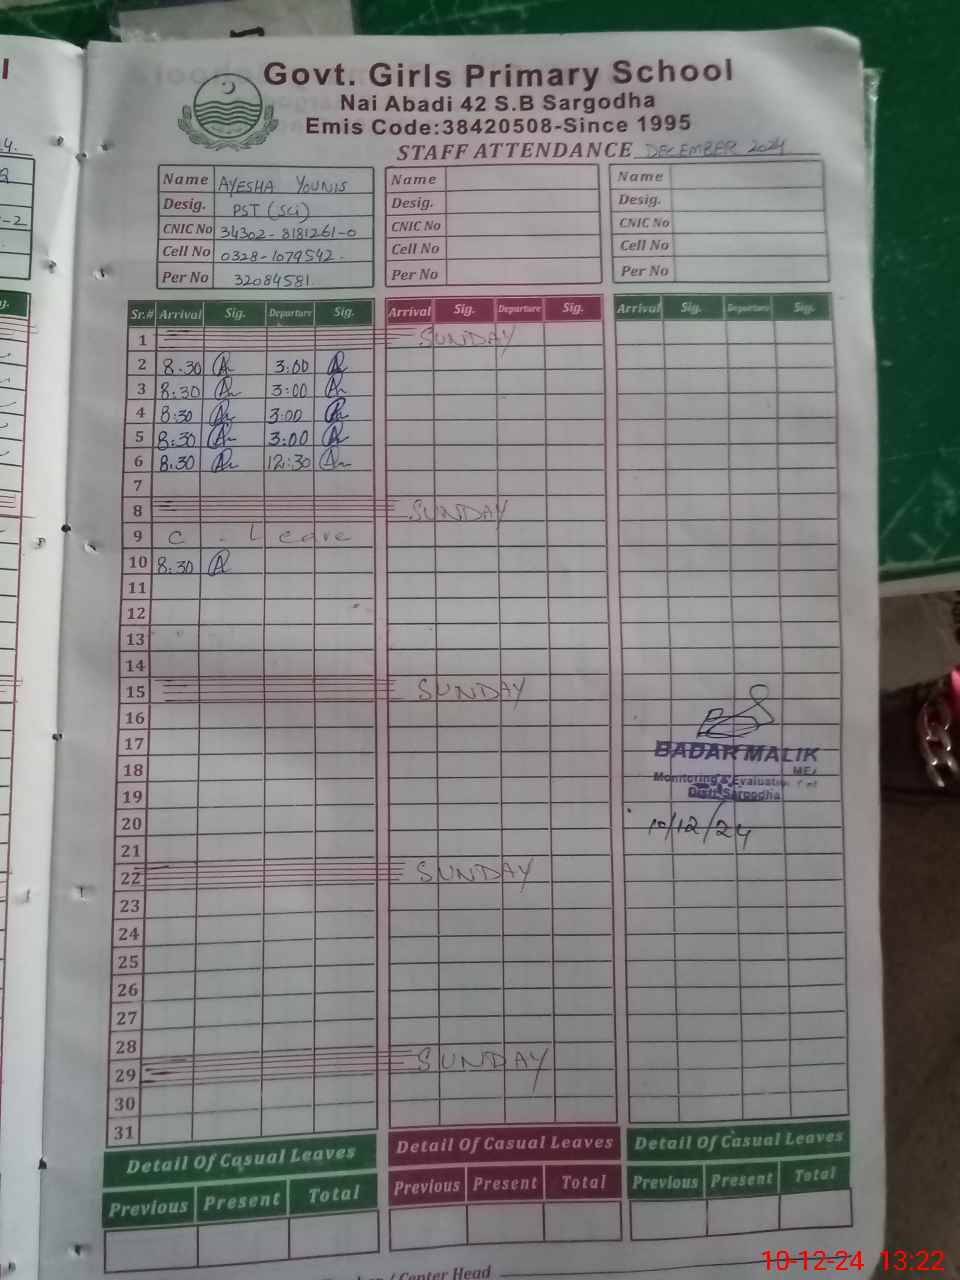 Govt. Girls Primary School
Nai Abadi 42 S.B Sargodha
Emis Code:38420508-Since 1995
STAFF ATTENDANCE DECEMBER 2024
Name AYESHA YOUNIS
Desig. PST (Sci)
CNIC No 34302-8181261-0
Cell No 0328-1079542.
Per No 32084581
Name
Desig.
CNIC No
Cell No
Per No
Name
Desig.
CNIC No
Cell No
Per No
Sr.# Arrival Sig. Departure Sig. Arrival Sig. Departure Sig. Arrival Sig. Departure Sig.
1 SUNDAY
2 8.30 3:00
3 8.30 3:00
4 8:30 3:00
5 8:30 3:00
6 8.30 12:30
7
8 SUNDAY
9 C - Leave
10 8:30
11
12
13
14
15 SUNDAY
16
17
18
19
20
21
22 SUNDAY
23
24
25
26
27
28
29 SUNDAY
30
31
BADAR MALIK
Monitoring & Evaluation
Distt. Sargodha
10/12/24
Detail Of Casual Leaves Detail Of Casual Leaves Detail Of Casual Leaves
Previous Present Total Previous Present Total Previous Present Total
/ Center Head
10-12-24 13:22